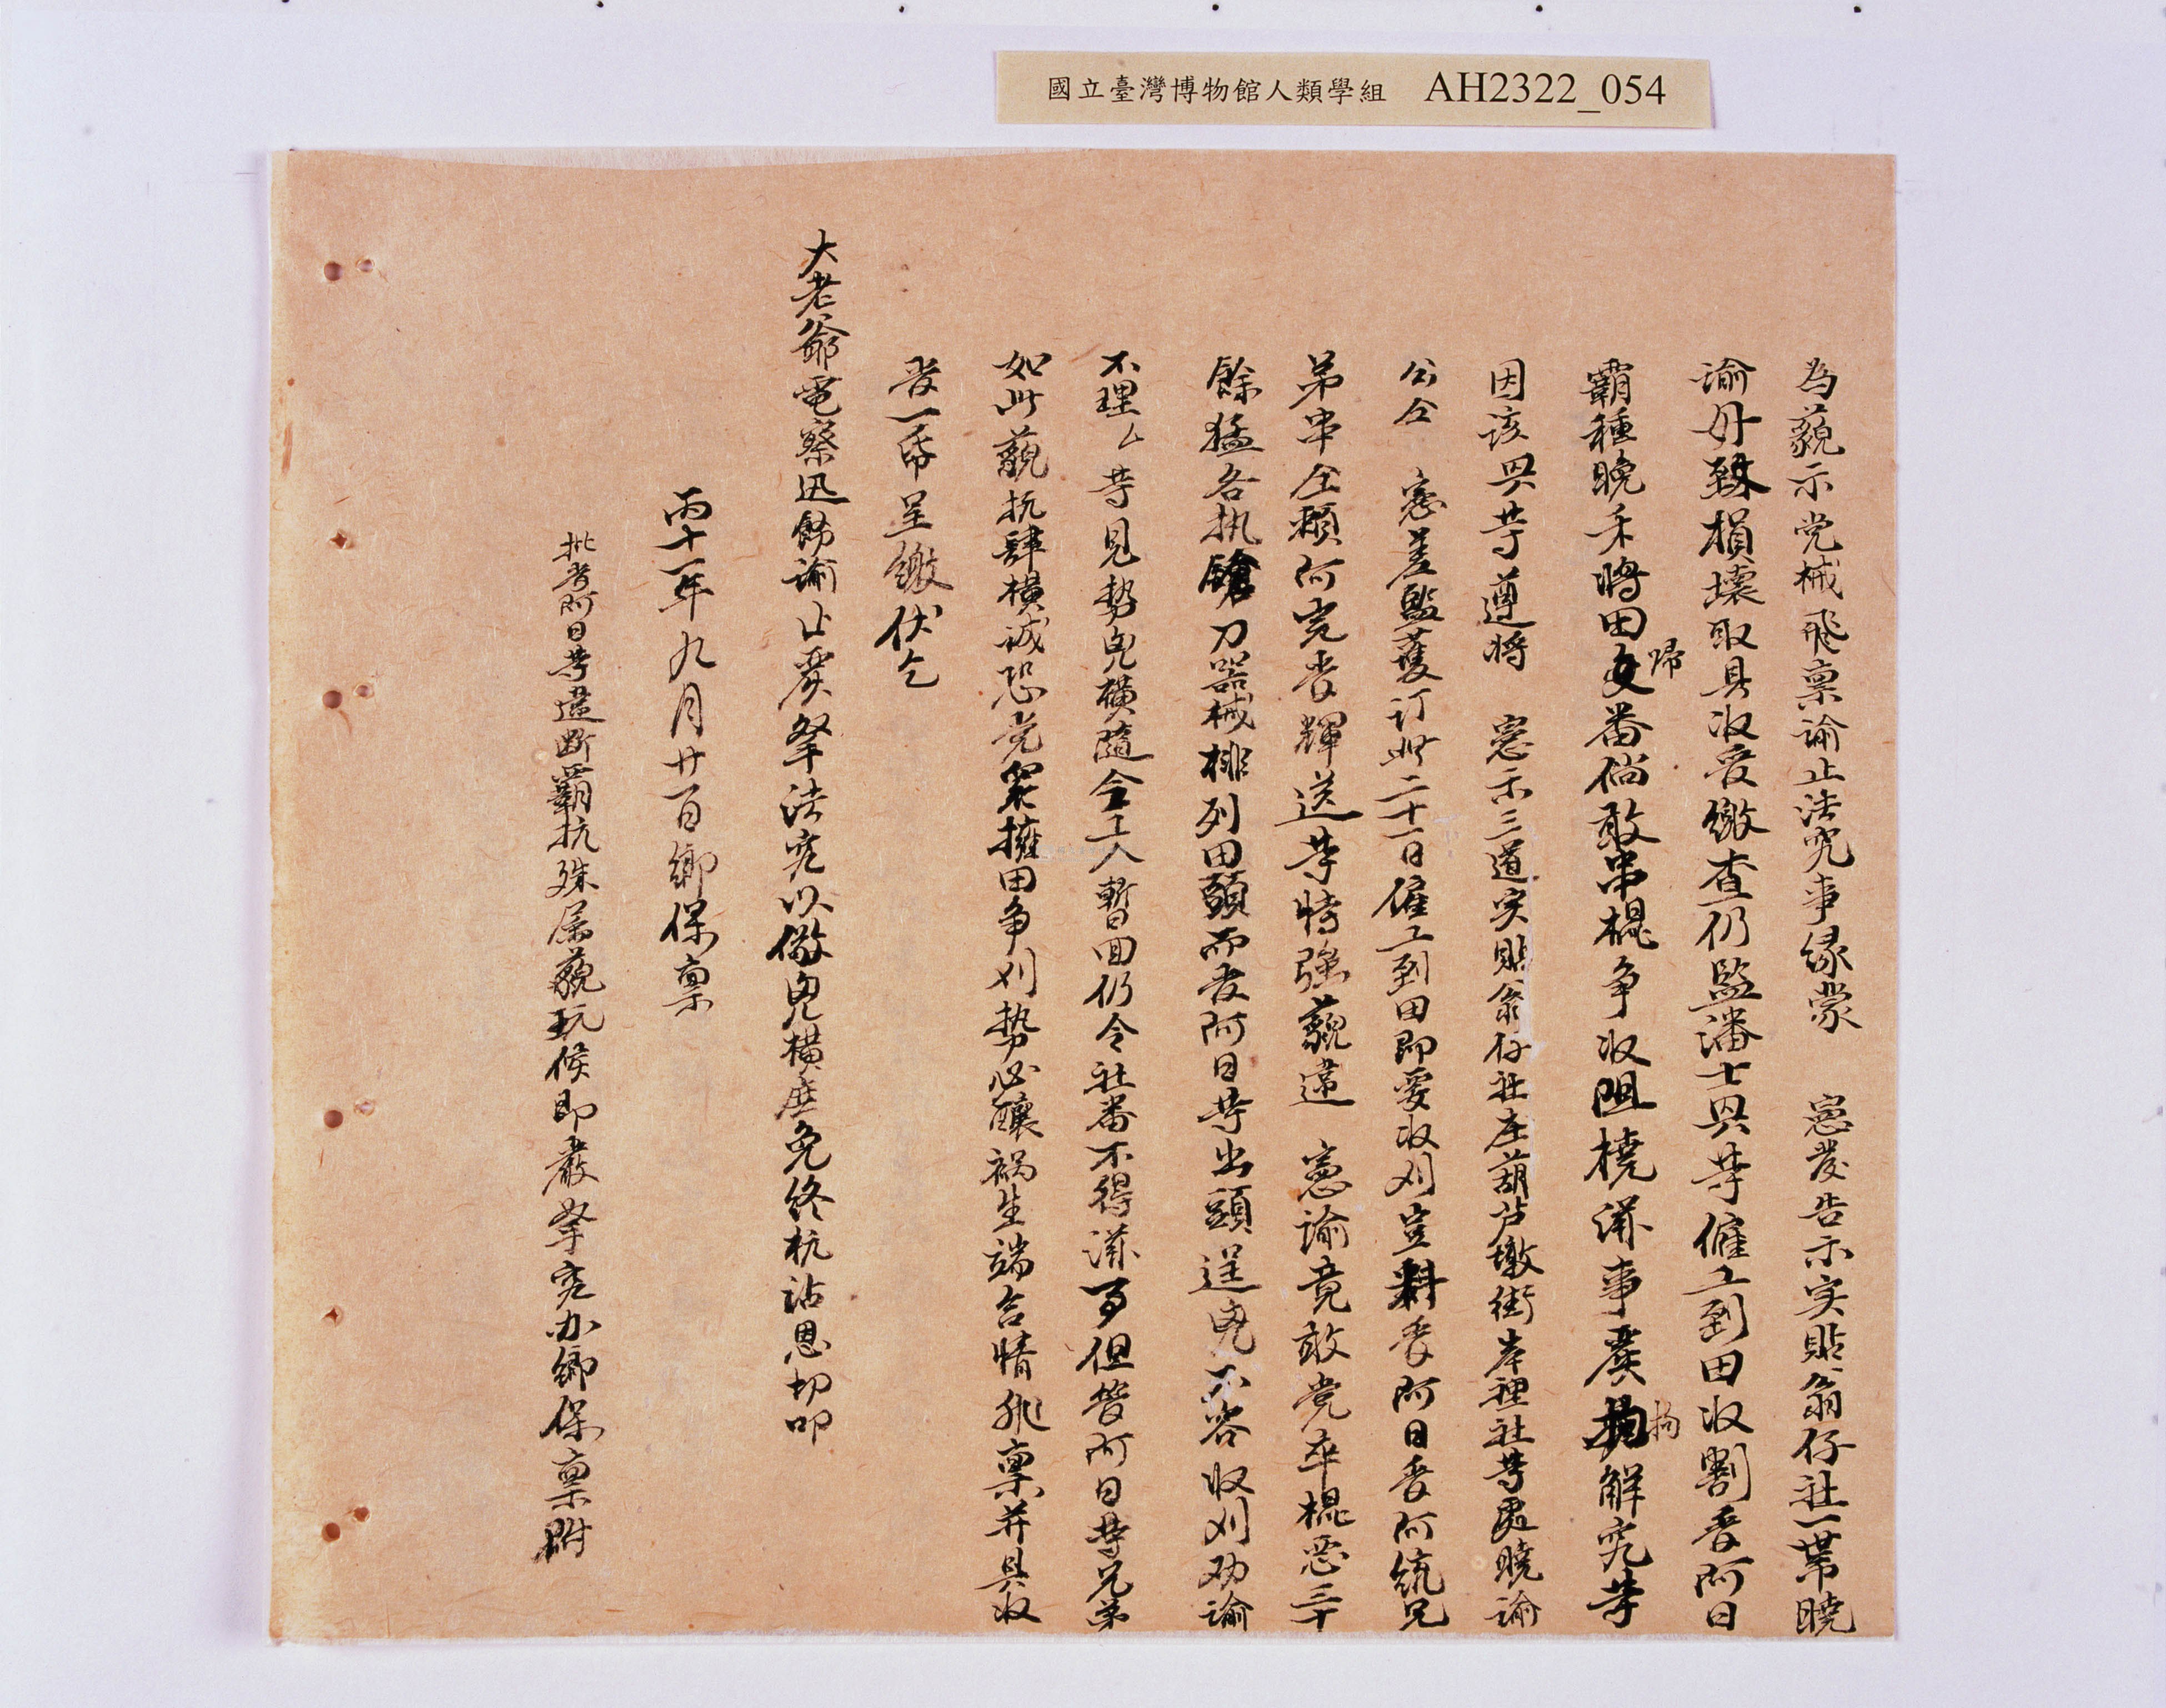 國立臺灣博物館人類學組 AH2322_054
為藐示党械飛禀諭止法究事緣蒙 憲發告示实貼翁仔社一帶曉
諭毋致損壞取具收管繳查仍監潘士兴等僱工到田收割香阿日
霸種晚禾將田歸番倘敢串棍争收阻撓滋事廩拘解究等
因该兴等遵將 憲示三道实貼翁仔社庄葫芦墩街岸裡社等處曉諭
公仝 憲差監蔓订此二十一日僱工到田即要收刈豈料香阿日香阿统兄
弟串仝賴阿完香輝送等恃強藐違 憲諭竟敢党率棍惡三十
餘猛各执鎗刀器械排列田頭而香阿日等出頭逞兇不容收刈劝諭
不理厶等見勢兇横隨令工人暫回仍令社番不得滋事但香阿日等兄弟
如此藐抗肆横誠恐党众擁田争刈势必釀禍生端合情飛禀并具收
管一紙呈繳伏乞
大老爺電察迅飭諭止严拏法究以儆兇横庶免终抗沾恩切叩
丙十一年九月廿一日鄉保禀
批香阿日等違断霸抗殊属藐玩候即嚴拏究办鄉保禀附